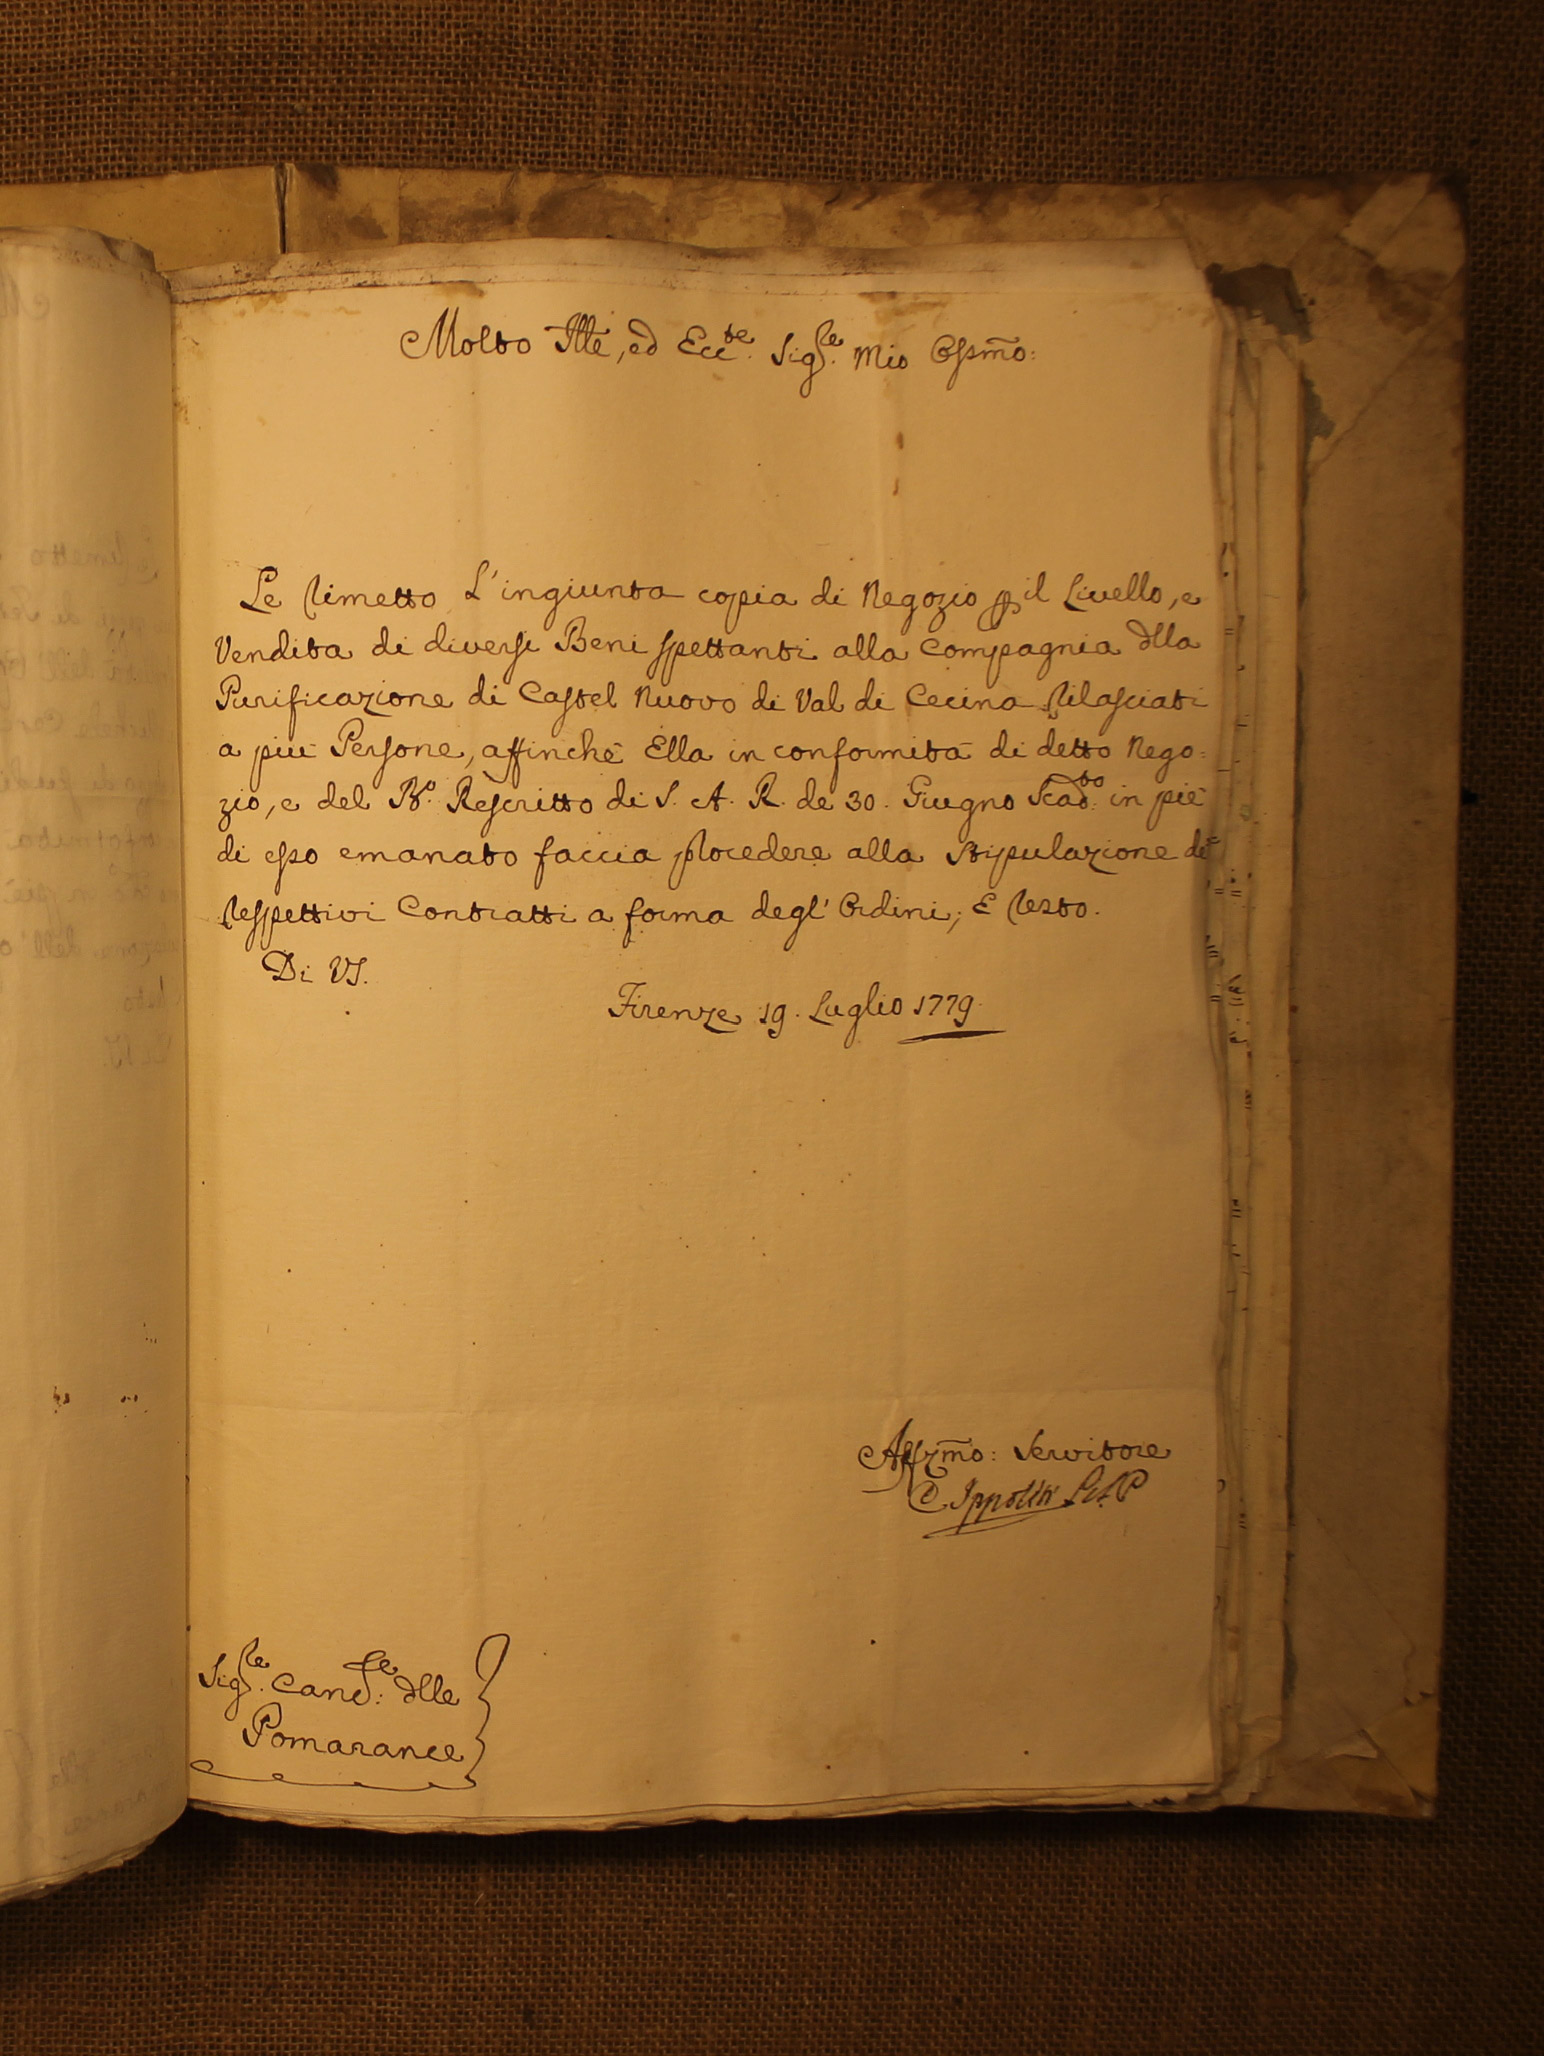 Molto Illte, ed Eccte. Sigre. Mio Ossmo:
Le rimetto L'ingiunta copia di Negozio p il Livello, e
Vendita di diversi Beni spettanti alla Compagnia dlla
Purificazione di Castel Nuovo di Val di Cecina Rilasciati
a più Persone, affinchè Ella in conformità di detto Nego:
zio, e del B. Rescritto di S. A. R. de 30. Giugno Scadto. in piè
di esso emanato faccia procedere alla Stipulazione de'
Respettivi Contratti a forma degl' Ordini; E Resto.
Di VS.
Firenze 19. Luglio 1779.
Affzmo: Servitore
Ippoliti
Sigre. Cance: dlle
Pomarance